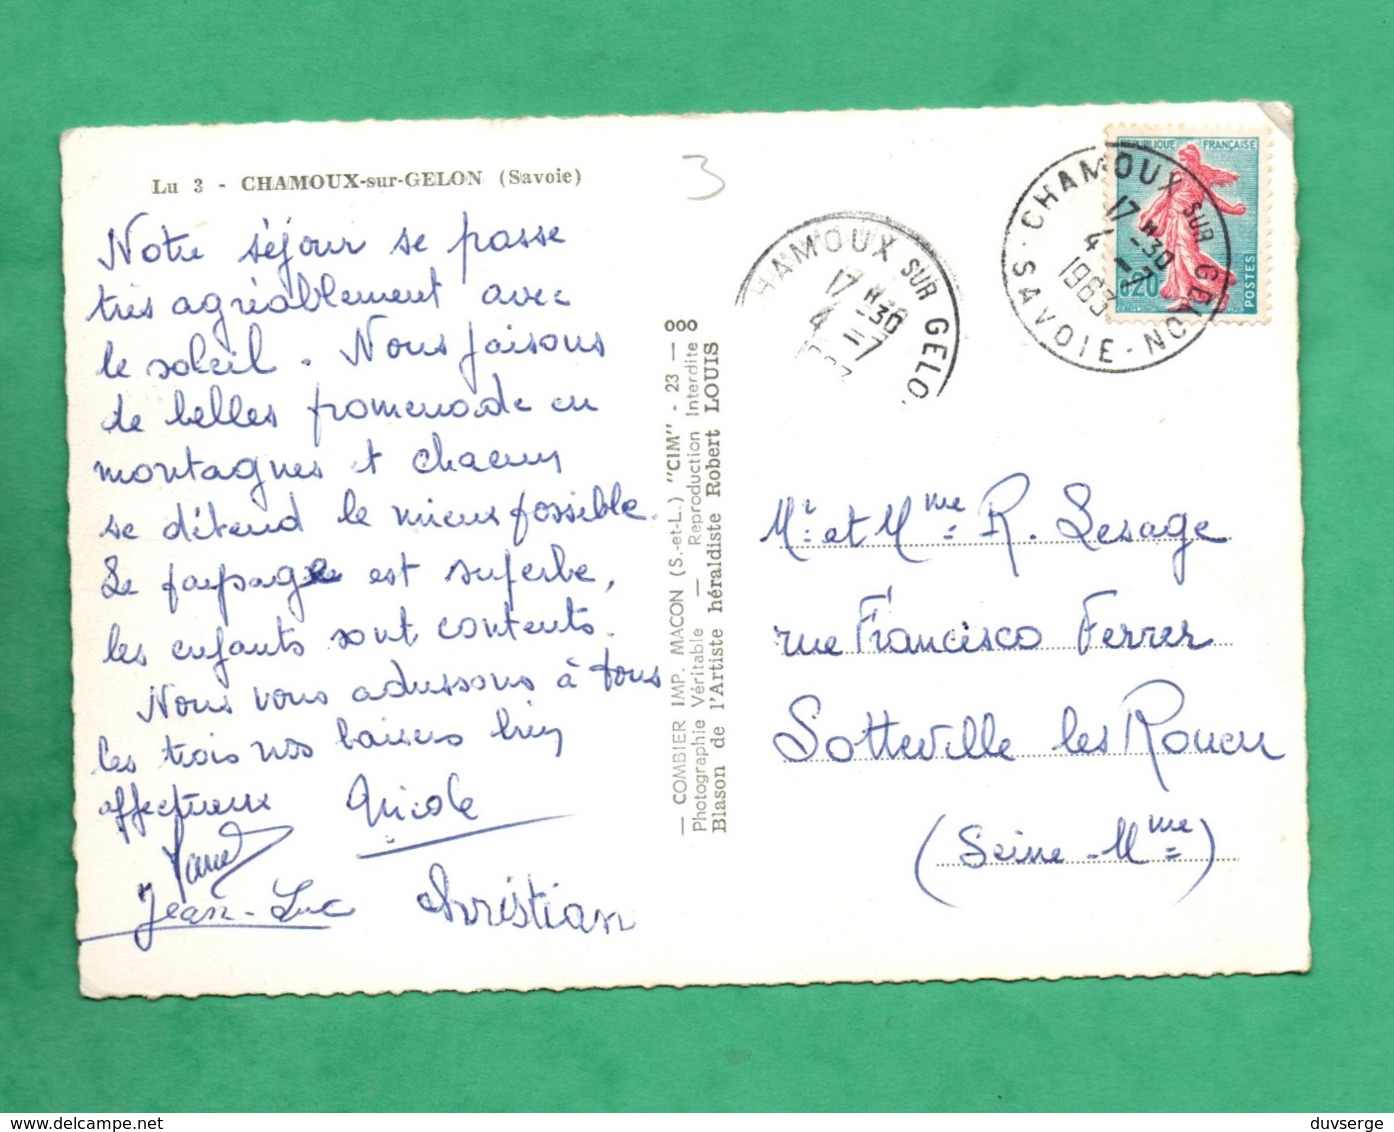 Lu 3 - CHAMOUX-sur-GELON (Savoie)
3
Notre séjour se passe
très agréablement avec
le soleil. Nous faisons
de belles promenade en
montagnes et chacun
se détend le mieux possible.
Le paysage est superbe,
les enfants sont contents.
Nous vous adressons à tous
les trois nos baisers bien
affectueux Nicole
Jean-Luc Christian
OOO
— COMBIER IMP. MACON (S.-et-L.) "CIM" - 23 —
Photographie Véritable — Reproduction Interdite
Blason de l'Artiste héraldiste Robert LOUIS
HAMOUX SUR GELO
17 H -30
4 -7
REPUBLIQUE FRANÇAISE
0,20
POSTES
CHAMOUX SUR GELON
17 H -30
4 -7
1963
SAVOIE
Mr et Mme R. Lesage
rue Francisco Ferrer
Sotteville les Rouen
(Seine-Mme)
duvserge